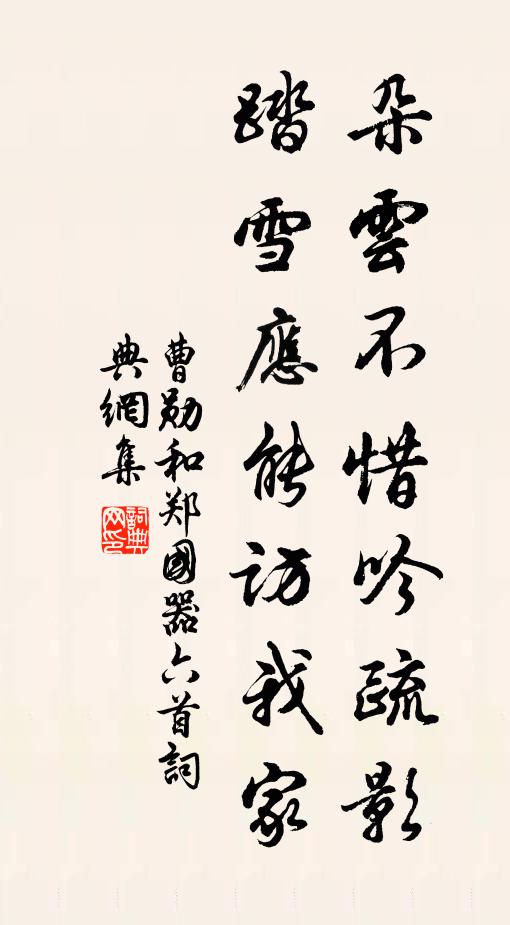 朵雲不惜吟疏影
踏雪應能訪我家
曹勛和郑國器六首詞
典網集
詞典
网印